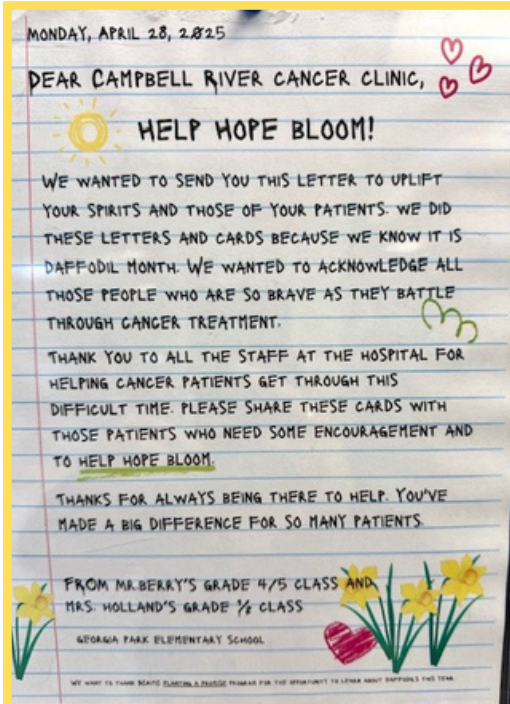 MONDAY, APRIL 28, 2025
DEAR CAMPBELL RIVER CANCER CLINIC,
HELP HOPE BLOOM!
WE WANTED TO SEND YOU THIS LETTER TO UPLIFT
YOUR SPIRITS AND THOSE OF YOUR PATIENTS. WE DID
THESE LETTERS AND CARDS BECAUSE WE KNOW IT IS
DAFFODIL MONTH. WE WANTED TO ACKNOWLEDGE ALL
THOSE PEOPLE WHO ARE SO BRAVE AS THEY BATTLE
THROUGH CANCER TREATMENT.
THANK YOU TO ALL THE STAFF AT THE HOSPITAL FOR
HELPING CANCER PATIENTS GET THROUGH THIS
DIFFICULT TIME. PLEASE SHARE THESE CARDS WITH
THOSE PATIENTS WHO NEED SOME ENCOURAGEMENT AND
TO HELP HOPE BLOOM.
THANKS FOR ALWAYS BEING THERE TO HELP. YOU'VE
MADE A BIG DIFFERENCE FOR SO MANY PATIENTS.
FROM MR.BERRY'S GRADE 4/5 CLASS AND
MRS. HOLLAND'S GRADE CLASS
GEORGIA PARK ELEMENTARY SCHOOL
WE WANT TO THANK PLANTING A PROMISE PROGRAM FOR THE OPPORTUNITY TO LEARN ABOUT DAFFODILS THIS YEAR.